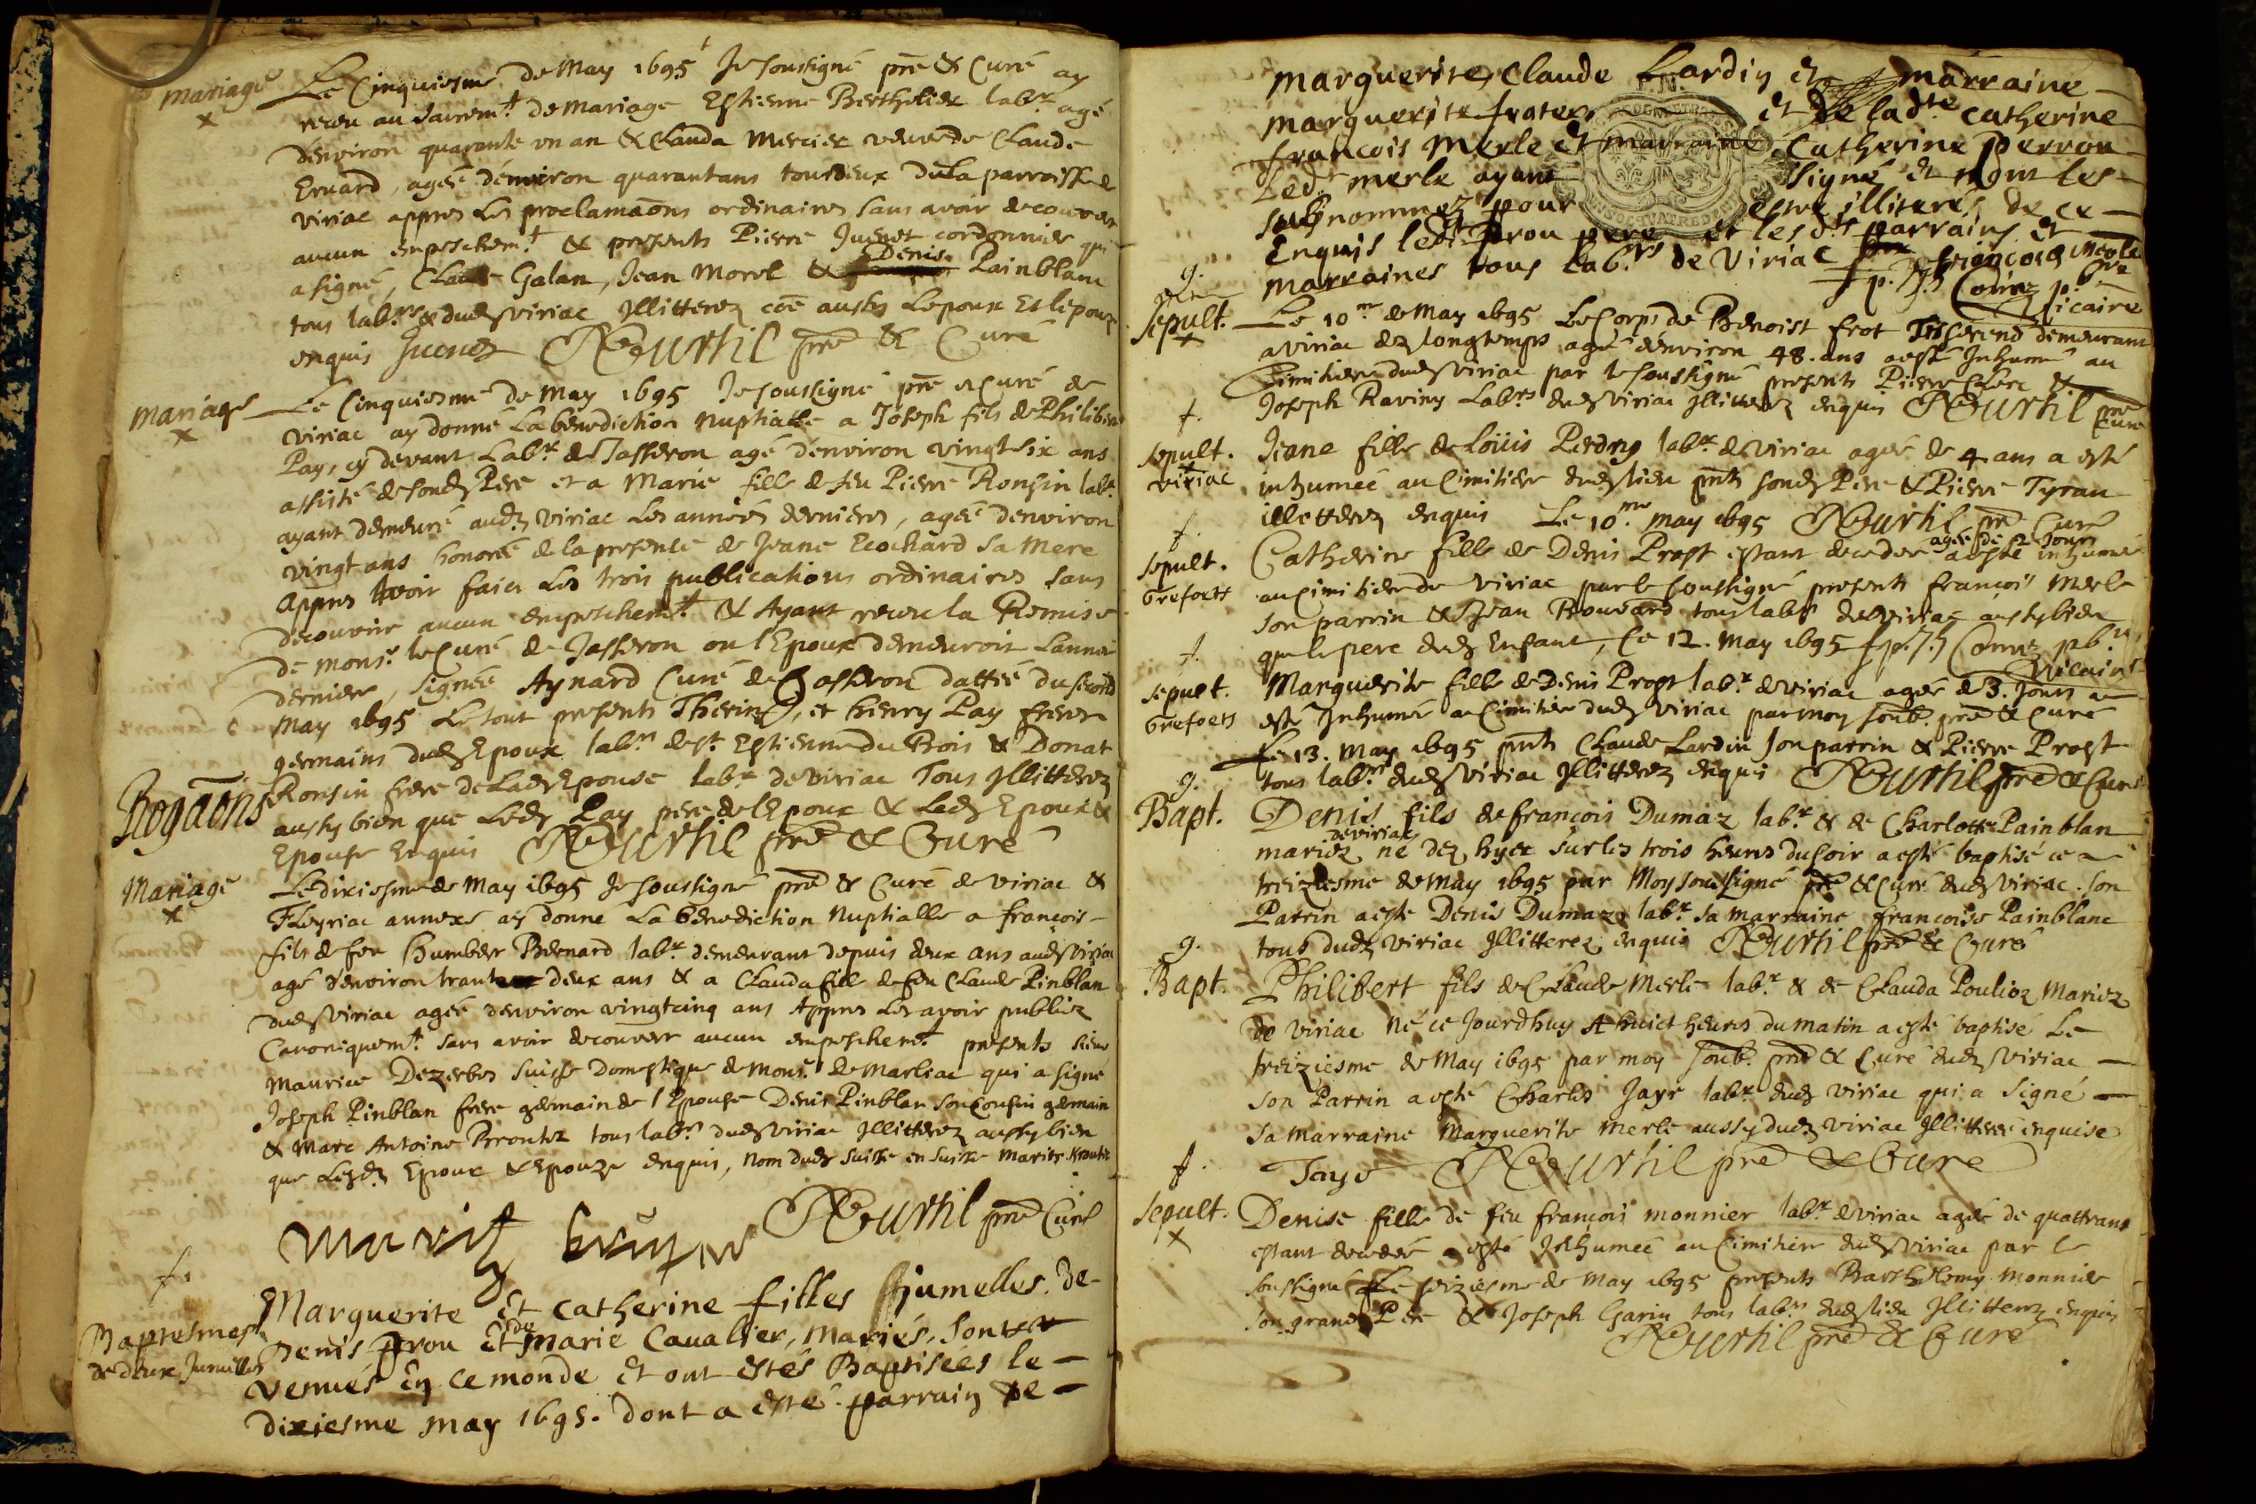 mariage
x
Le Cinquiesme de May 1695 Je soussigné pre & Curé ay
receu au sacrem.t de mariage Estienne Berthelier lab.r agé
denviron quarante un an & Clauda Mercier veuve de Claude
Evrard, agée denviron quarantans tous deux de la parroisse de
viriac appres les proclamaons ordinaires sans avoir decouvert
aucun empeschem.t & presents Pierre Juenet cordonnier qui
a signé, Claude Galan, Jean Morel & Denis Painblanc
tous lab.rs dudz viriac Jllitterez coe aussy Lepoux et lepouze
enquis Juenet RGourtil pre & Curé
mariage
x
Le Cinquiesme de May 1695 Je soussigné pre & Curé de
viriac ay donné La benediction Nuptialle a Joseph fils de Philibert
Pay, cy devant Lab.r de Jasseron agé denviron vingt six ans
assisté de sondz Pere et a Marie fille de feu Pierre Ronsin lab.r
ayant demeuré audz viriac Les années dernieres, agée denviron
vingt ans honorée de la presence de Jeane Ecochard sa Mere
appres avoir faict Les trois publications ordinaires sans
decouvrir aucun empeschem.t & Ayant receu la Remise
de mons.r le Curé de Jasseron ou l'Epoux demeuroit Lannée
derniere, signée Aynard Curé de Jasseron dattée du second
May 1695 Le tout presents Thevin, et henry Pay freres
germains dudz Epoux lab.rs de s.t Estienne du Bois & Donat
Rogaons
Ronsin frere de Ladz Epouse lab.r de viriac Tous Jllitterez
aussy bien que Ledz Pay pere de lEpoux & Ledz Epoux &
Epouse Enquis RGourtil pre & Curé
Mariage
x
Le dixiesme de May 1695 Je soussigné pre & Curé de viriac &
Fleyriac annexe ay donné La benediction Nuptialle a françois
fils de feu humbert Bernard lab.r demeurant depuis deux ans audz viriac
agé denviron trante deux ans & a Clauda fille de feu Claude Pinblan
dudz viriac agée denviron vingtcinq ans Appres Les avoir publiez
Canoniquem.t sans avoir decouvert aucun empeschem.t presents sieur
Maurice Dezerbes suisse domestique de mons.r de Marliac qui a signé
Joseph Pinblan frere germain de l'Epouse Denis Pinblan son Cousin germain
& Marc Antoine Brontez tous lab.rs dudz viriac Jllitterez aussy bien
que Lesdz Epoux & Epouze enquis, nom dudz suisse en suisse
RGourtil pre Curé
f.
Baptesmes
de deux Jumelles
Marguerite Et Catherine filles Jumelles de
Denis prou Et de Marie Cavalier, Mariés, sont
venués En ce monde Et ont estés Baptisées le
dixiesme may 1695. Dont a esté parrain de
marguerite, Claude Lardin et marraine
marguerite frater et de lad.te catherine
francois Merle Et marraine Catherine Perron
Led.t merle ayant signé Et non les
susnommez pour estre illiterés de ce
Enquis led.t prou pere et les d.ts parrains Et
marraines tous lab.rs de Viriac françois Merle
Vicaire
g.
sepult.
x
Le 10.me de May 1695 Le Corps de Benoist frot Tisserend demeurant
a viriac dez longtemps agé denviron 48. ans a esté Inhumé au
Cimitiere dudz viriac par le soussigné presents Pierre &
Joseph Raviny Lab.rs dudz viriac Jllitterez enquis RGourtil pre Curé
f.
sepult.
viriac
Jeane fille de Loüis Perdrix lab.r de viriac agée de 4 ans a esté
inhumée au Cimitiere dudz lieu pnts sondz Pere & Pierre Tyran
illetterez enquis Le 10.me may 1695 RGourtil pre Curé
f.
sepult.
Grefoets
Catherine fille de Denis Prost estant decedée agée de 2 Jours a esté inhumé
au Cimitiere de viriac par le soussigné presents françois Merle
son parrin & Jean Bouvard tous lab.rs de viriac aussy bien
que le pere dudz Enfant, le 12. May 1695
Vicaire
f.
sepult.
Grefoets
Marguerite fille de Denis Prost lab.r de viriac agée de 3. Jours a
esté Inhumé au Cimitiere dudz viriac par moy soub. pre & Curé
Le 13. May 1695 pnts Claude Lardin son parrin & Pierre Prost
tous lab.rs dudz viriac Jllitterez enquis RGourtil pre & Curé
g.
Bapt.
Denis fils de françois Dumaz lab.r & de Charlotte Painblan
mariez de viriac né dez hyer sur les trois heures du soir a esté baptisé ce
treiziesme de May 1695 par Moy soussigné pre & Curé dudz viriac. son
Parrin a esté Denis Dumaz lab.r sa marraine françoise Painblanc
tous dudz viriac Jllitterez enquis RGourtil pre & Curé
g.
Bapt.
Philibert fils de Claude Merle lab.r & de Clauda Poulioz Mariez
de viriac Né ce Jourdhuy A huict heures du matin a esté baptisé Le
treiziesme de May 1695 par moy soub. pre & Curé dudz viriac
son Parrin a esté Charles Jayr lab.r dudz viriac qui a signé
sa marraine Marguerite Merle aussy dudz viriac Jllitterée enquise
Jayr RGourtil pre & Curé
f.
sepult.
x
Denise fille de feu françois monnier lab.r de viriac agée de quattrans
estant decedée a esté Inhumée au Cimitiere dudz viriac par le
soussigné Le seiziesme de May 1695 presents Barthelemy monnier
son grand Pere & Joseph Garin tous lab.rs dudz lieu Jllitterez enquis
RGourtil pre & Curé